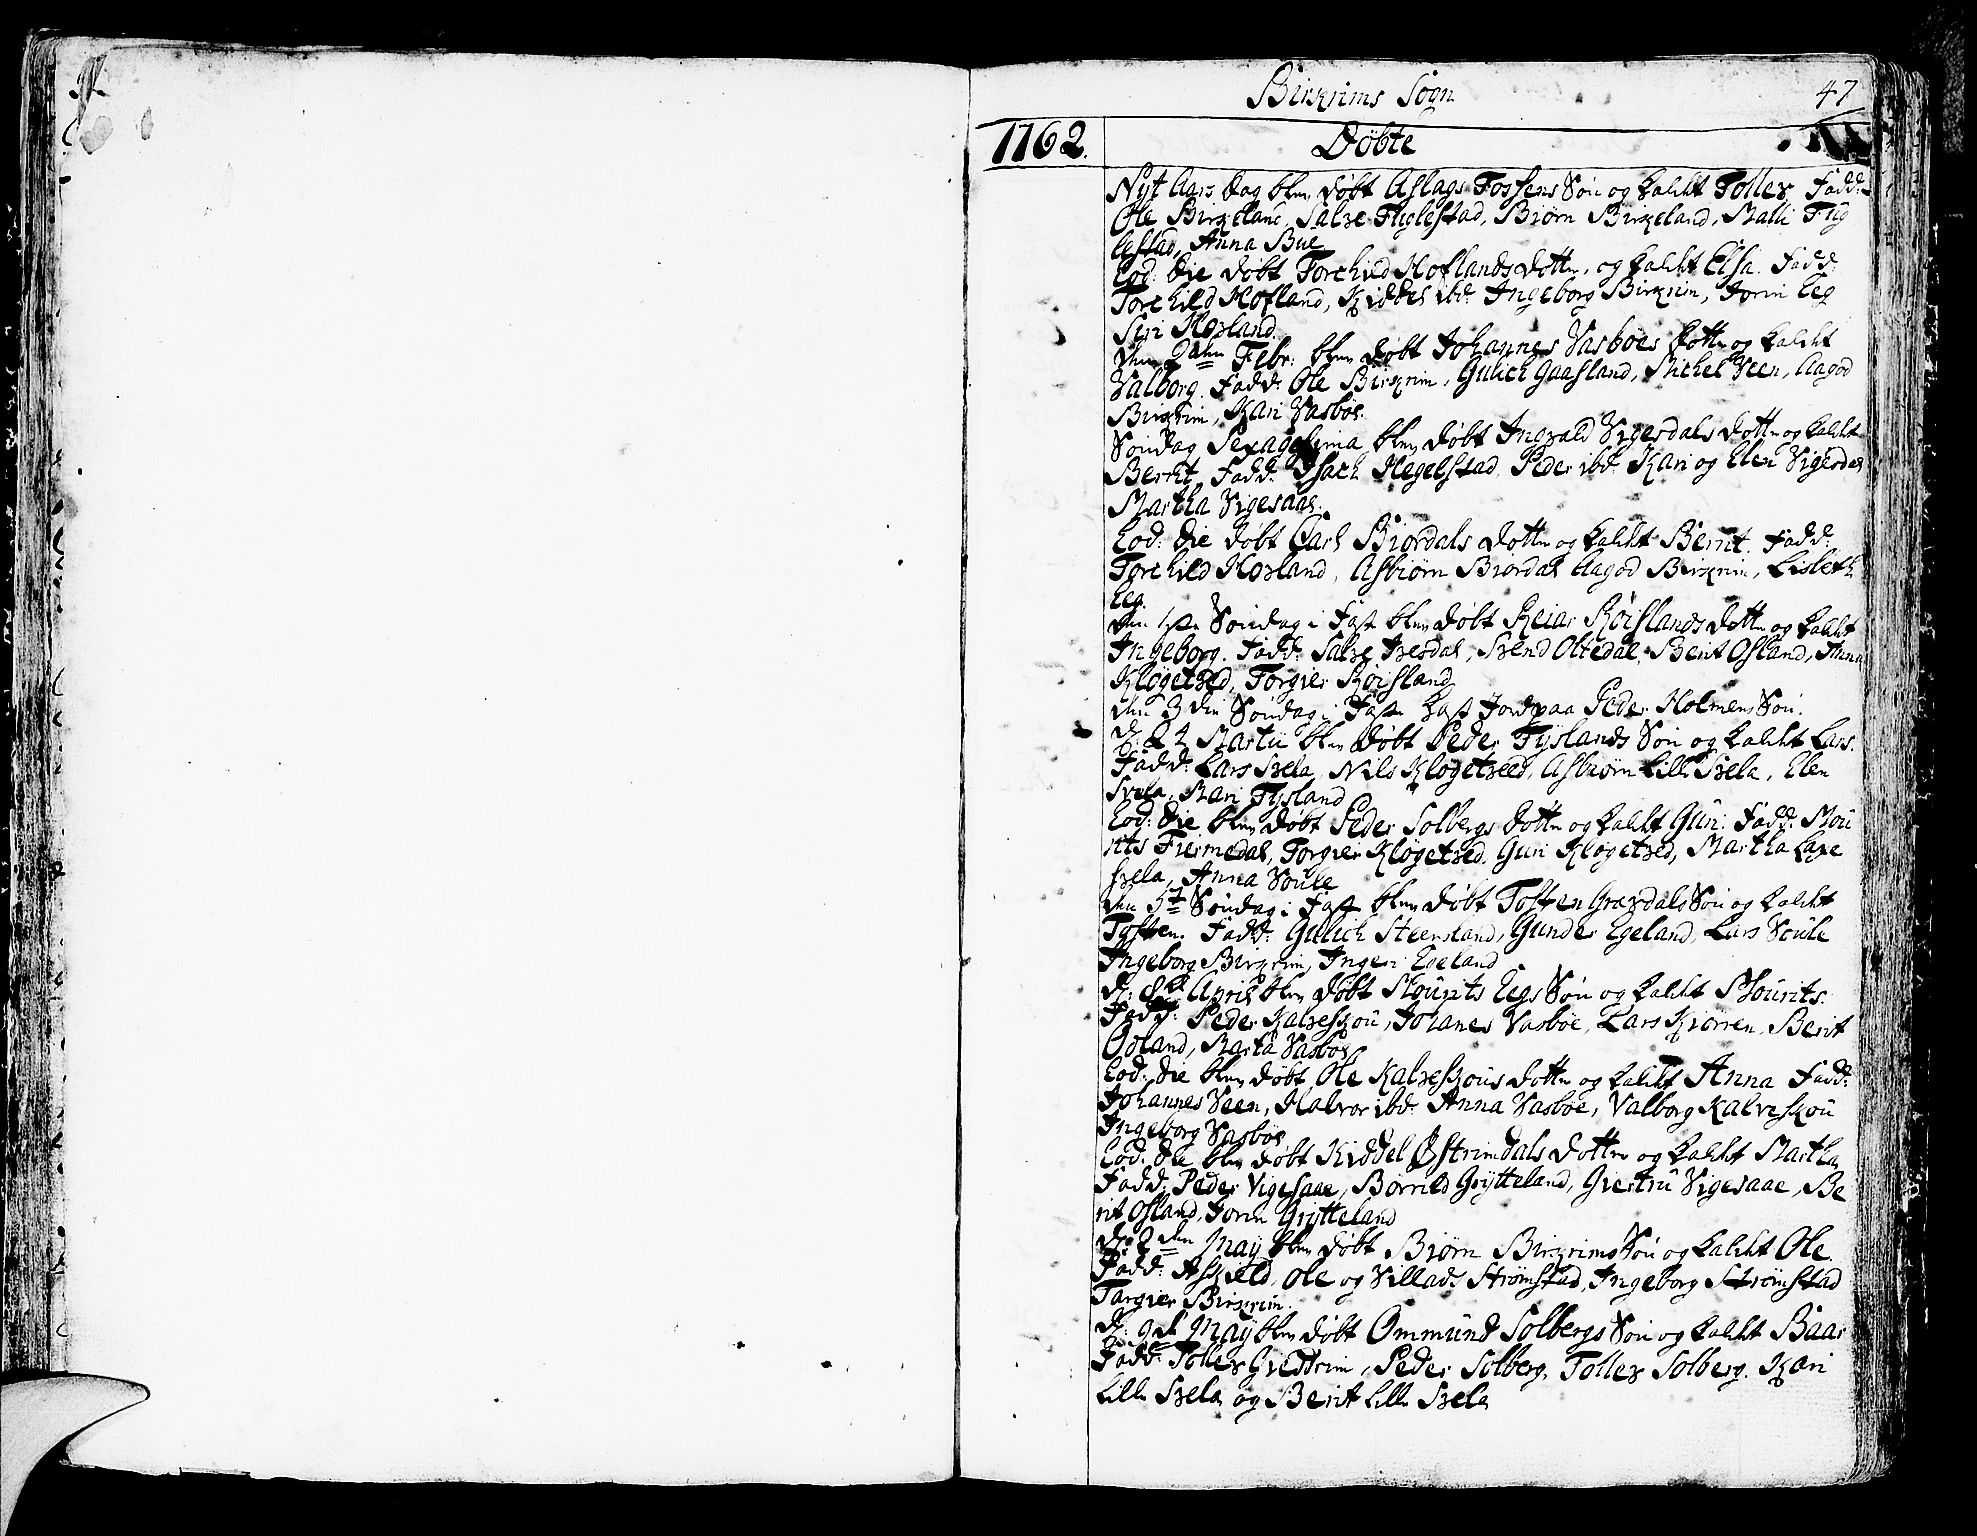 Birkrims Sogn 47
1762. Døbte
Nyt Aars dag blev døbt Aslags Fossens Søn og kaldt Tollev Fadd:
Ole Birkeland, Salve Fuglestad, Biørn Birkeland, Malli Fug
lestad, Anna Bue.
Eod: die døbt Torchild Hoflands dotter, og kaldt Elsa. Fadd:
Torchild Hofland, Kiddel ibd: Ingeborg Birkrim, Jorin Eeg
Siri Hovland.
den 2den Febr: blev døbt Johannes Vasboes dotter og kaldt
Valborg. Fadd: Ole Birkrim, Gulich Gaasland, Michel Veen, Aagod
Birkrim, Kari Vasboe.
Søndag Sexagesima blev døbt Ingvald Vigesdals dotter og kaldt
Berrit, Fadd: Isach Hegelstad, Peder ibd: Kari og Elen Vigesdal
Martha Vigesaae.
Eod: die døbt Carl Biordals dotter og kaldt Berrit. Fadd:
Torchild Hovland, Asbiørn Biordal Aagod Birkrim, Lisbeth
Eeg.
den 1ste Søndag i Fast blev døbt Reiar Røislands dotter og kaldt
Ingeborg. Fadd: Salve Ivesdal, Svend Oltedal, Berit Osland, Anna
Kløgetved, Torgier Røisland
den 3die Søndag i Fasten kast Jord paa Peder Holmens Søn.
d: 24 Martii blev døbt Peder Tyslands Søn og kaldt Lars.
Fadd: Lars Svela, Nils Kløgetveed, Asbiørn Lille Svela, Elen
Svela, Mari Tysland
Eod: die blev døbt Peder Solbergs dotter og kaldt Guri. Fadd: Mou
rits Fiermedal, Torgier Kløgetved, Guri Kløgetved, Martha Lave
Svela, Anna Soule
den 5t Søndag i Fast blev døbt Tosten Gravdals Søn og kaldt
Tosten. Fadd: Gulich Steensland, Gunder Egeland, Lars Soule
Ingeborg Birkrim, Inger Egeland
d: 8d April blev døbt Mourits Eegs Søn og kaldt Mourits.
Fadd: Peder Kalveskou, Johanes Vasboe, Lars Kiørren, Berit
Ooland, Marta Vasboe
Eod: die blev døbt Ole Kalveskous dotter og kaldt Anna Fadd:
Johannes Veen, Halvor ibd: Anna Vasboe, Valborg Kalveskou
Ingeborg Vasboe.
Eod: die blev døbt Kiddel Østrimdals dotter og kaldt Martha
Fadd: Peder Vigesaae, Børrild Grytteland, Giertru Vigesaae, Be
rit Osland, Jorin Grytteland
d: 2den May blev døbt Biørn Birkrims Søn og kaldt Ole
Fadd: Askield, Ole og Villads Strømstad, Ingeborg Strømstad
Targier Birkrim.
d: 9d May blev døbt Ommund Solbergs Søn og kaldt Baar
Fadd: Tollev Grettrim, Peder Solberg, Tollev Solberg, Kari
Lille Svela og Berit Lille Svela